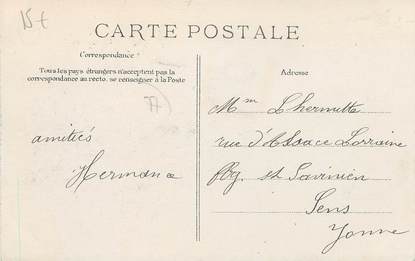 15€
CARTE POSTALE
Correspondance
Tous les pays étrangers n'acceptent pas la
correspondance au recto. se renseigner à la Poste
77
amitiés
Hermance
Adresse
Mme Lhermitte
rue d'Alsace Lorraine
fbg. st Savinien
Sens
Yonne